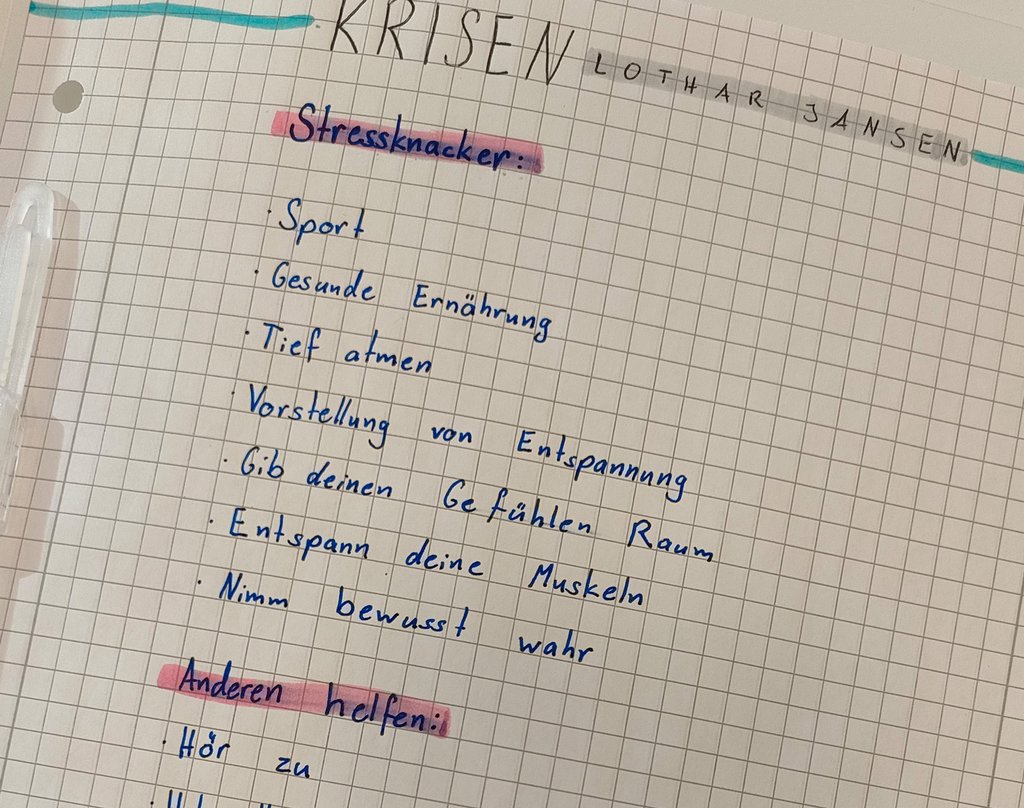 KRISEN LOTHAR JANSEN
Stressknacker:
· Sport
· Gesunde Ernährung
· Tief atmen
· Vorstellung von Entspannung
· Gib deinen Gefühlen Raum
· Entspann deine Muskeln
· Nimm bewusst wahr
Anderen helfen:
· Hör zu